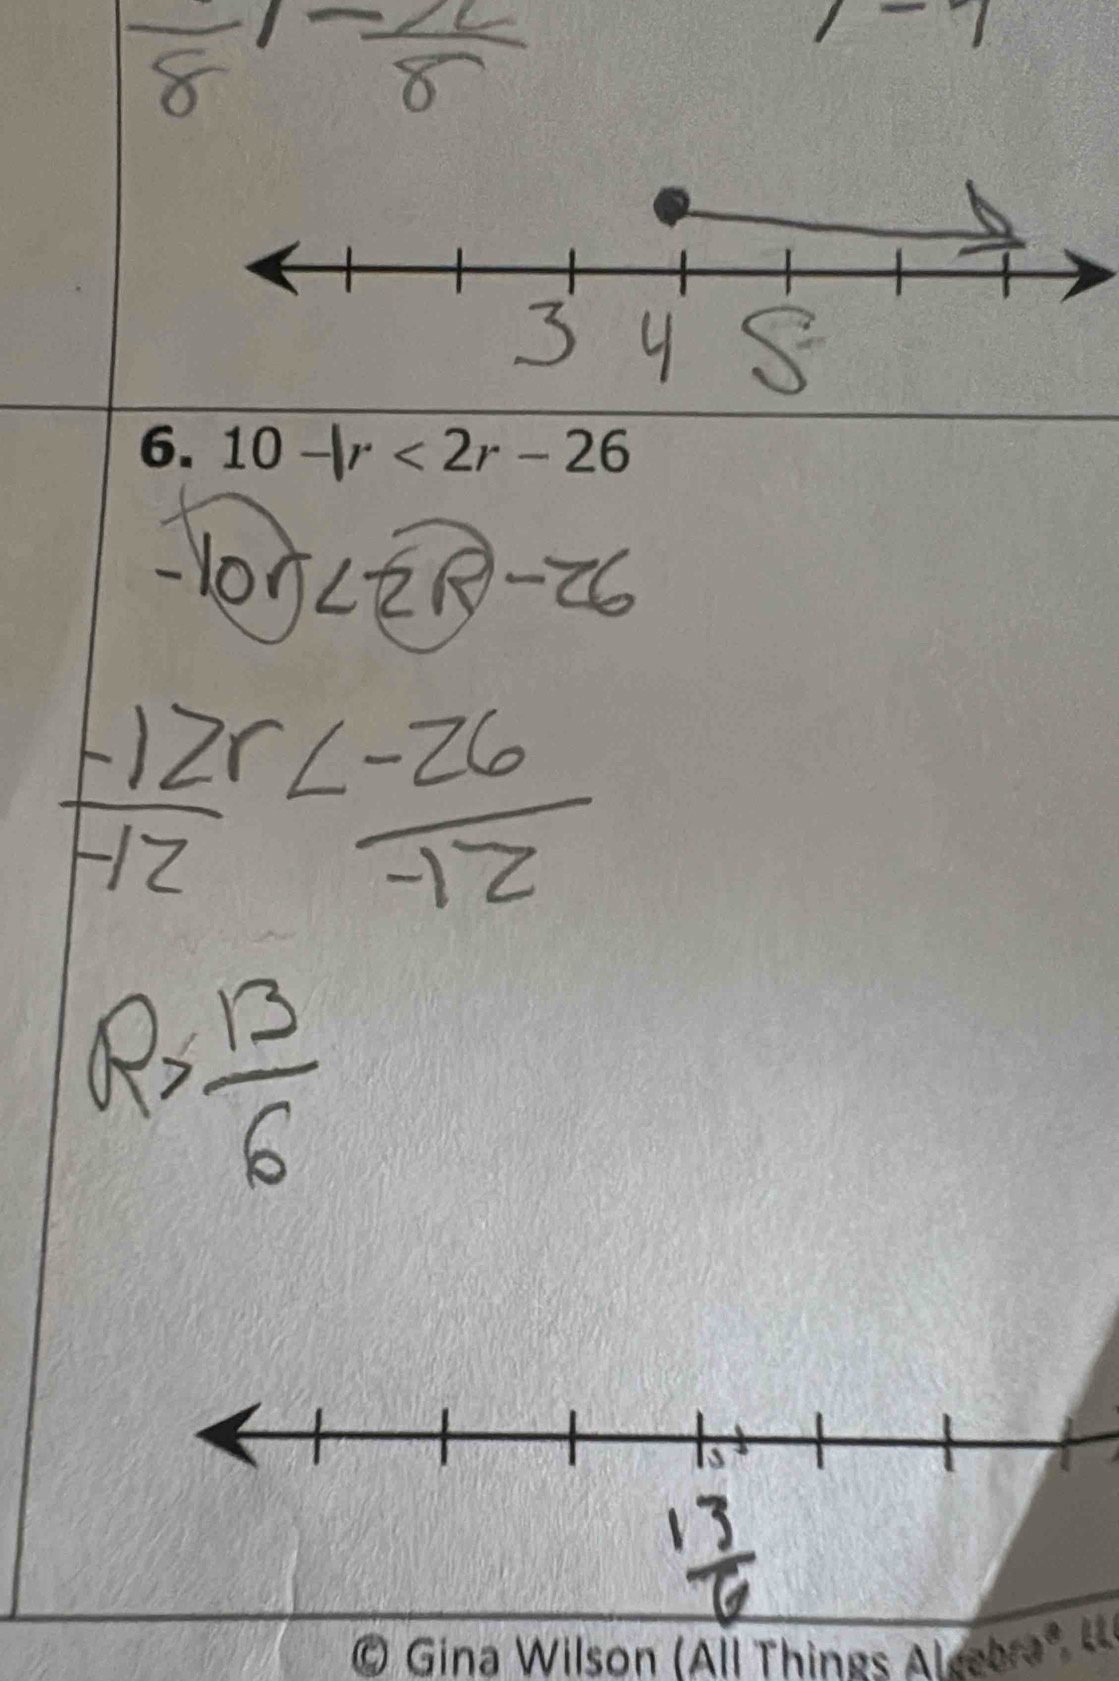 8 8
3 4 5
6. 10 - 1r < 2r - 26
-10r < 2R - 26
-12r < -26
-12 -12
R > 13
6
13
6
© Gina Wilson (All Things Algebra®, LL